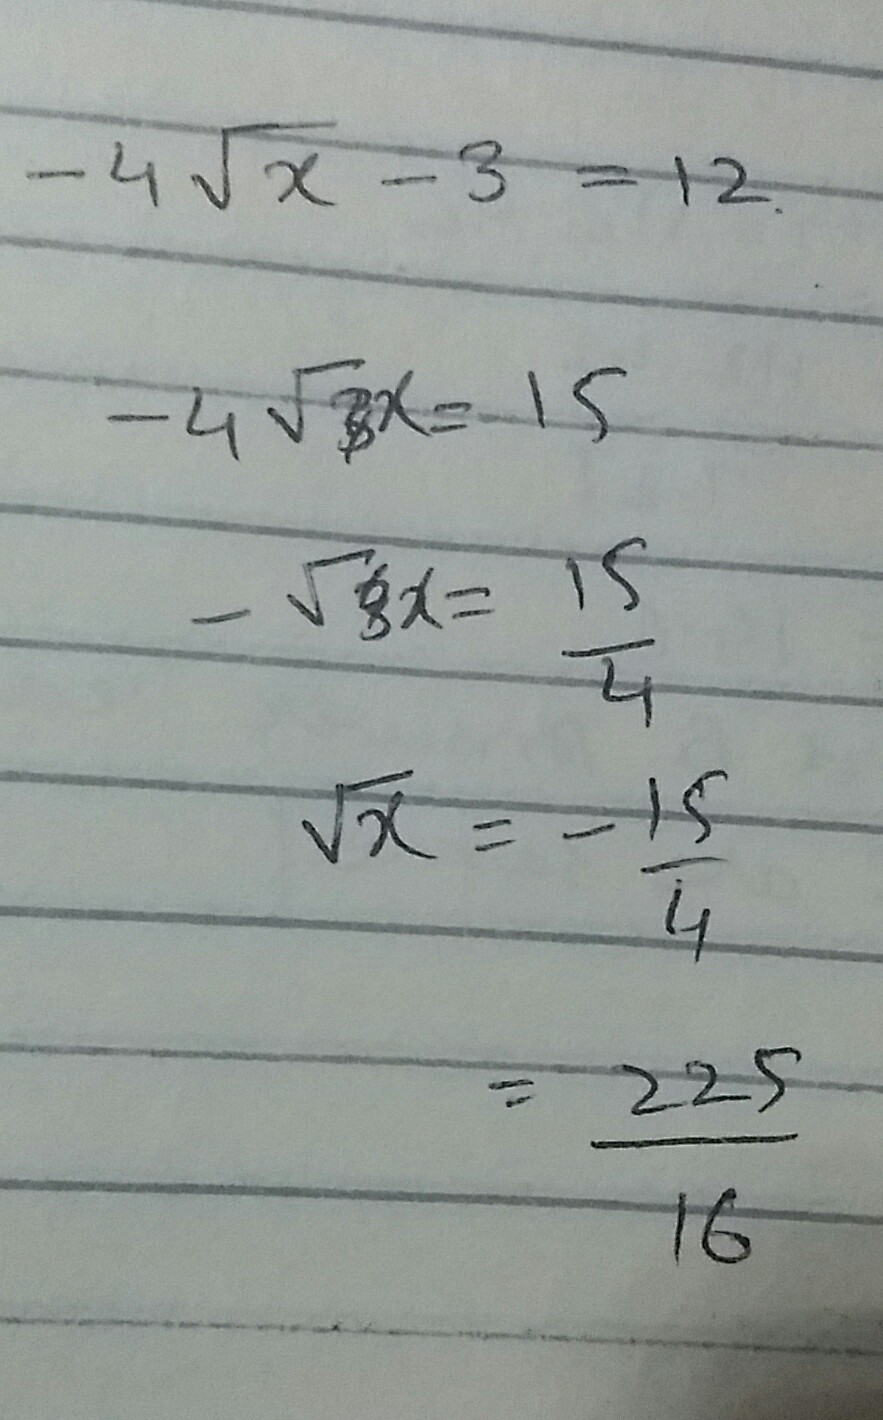 -4√x - 3 = 12.
-4√x = 15
-√x = 15/4
√x = -15/4
= 225/16